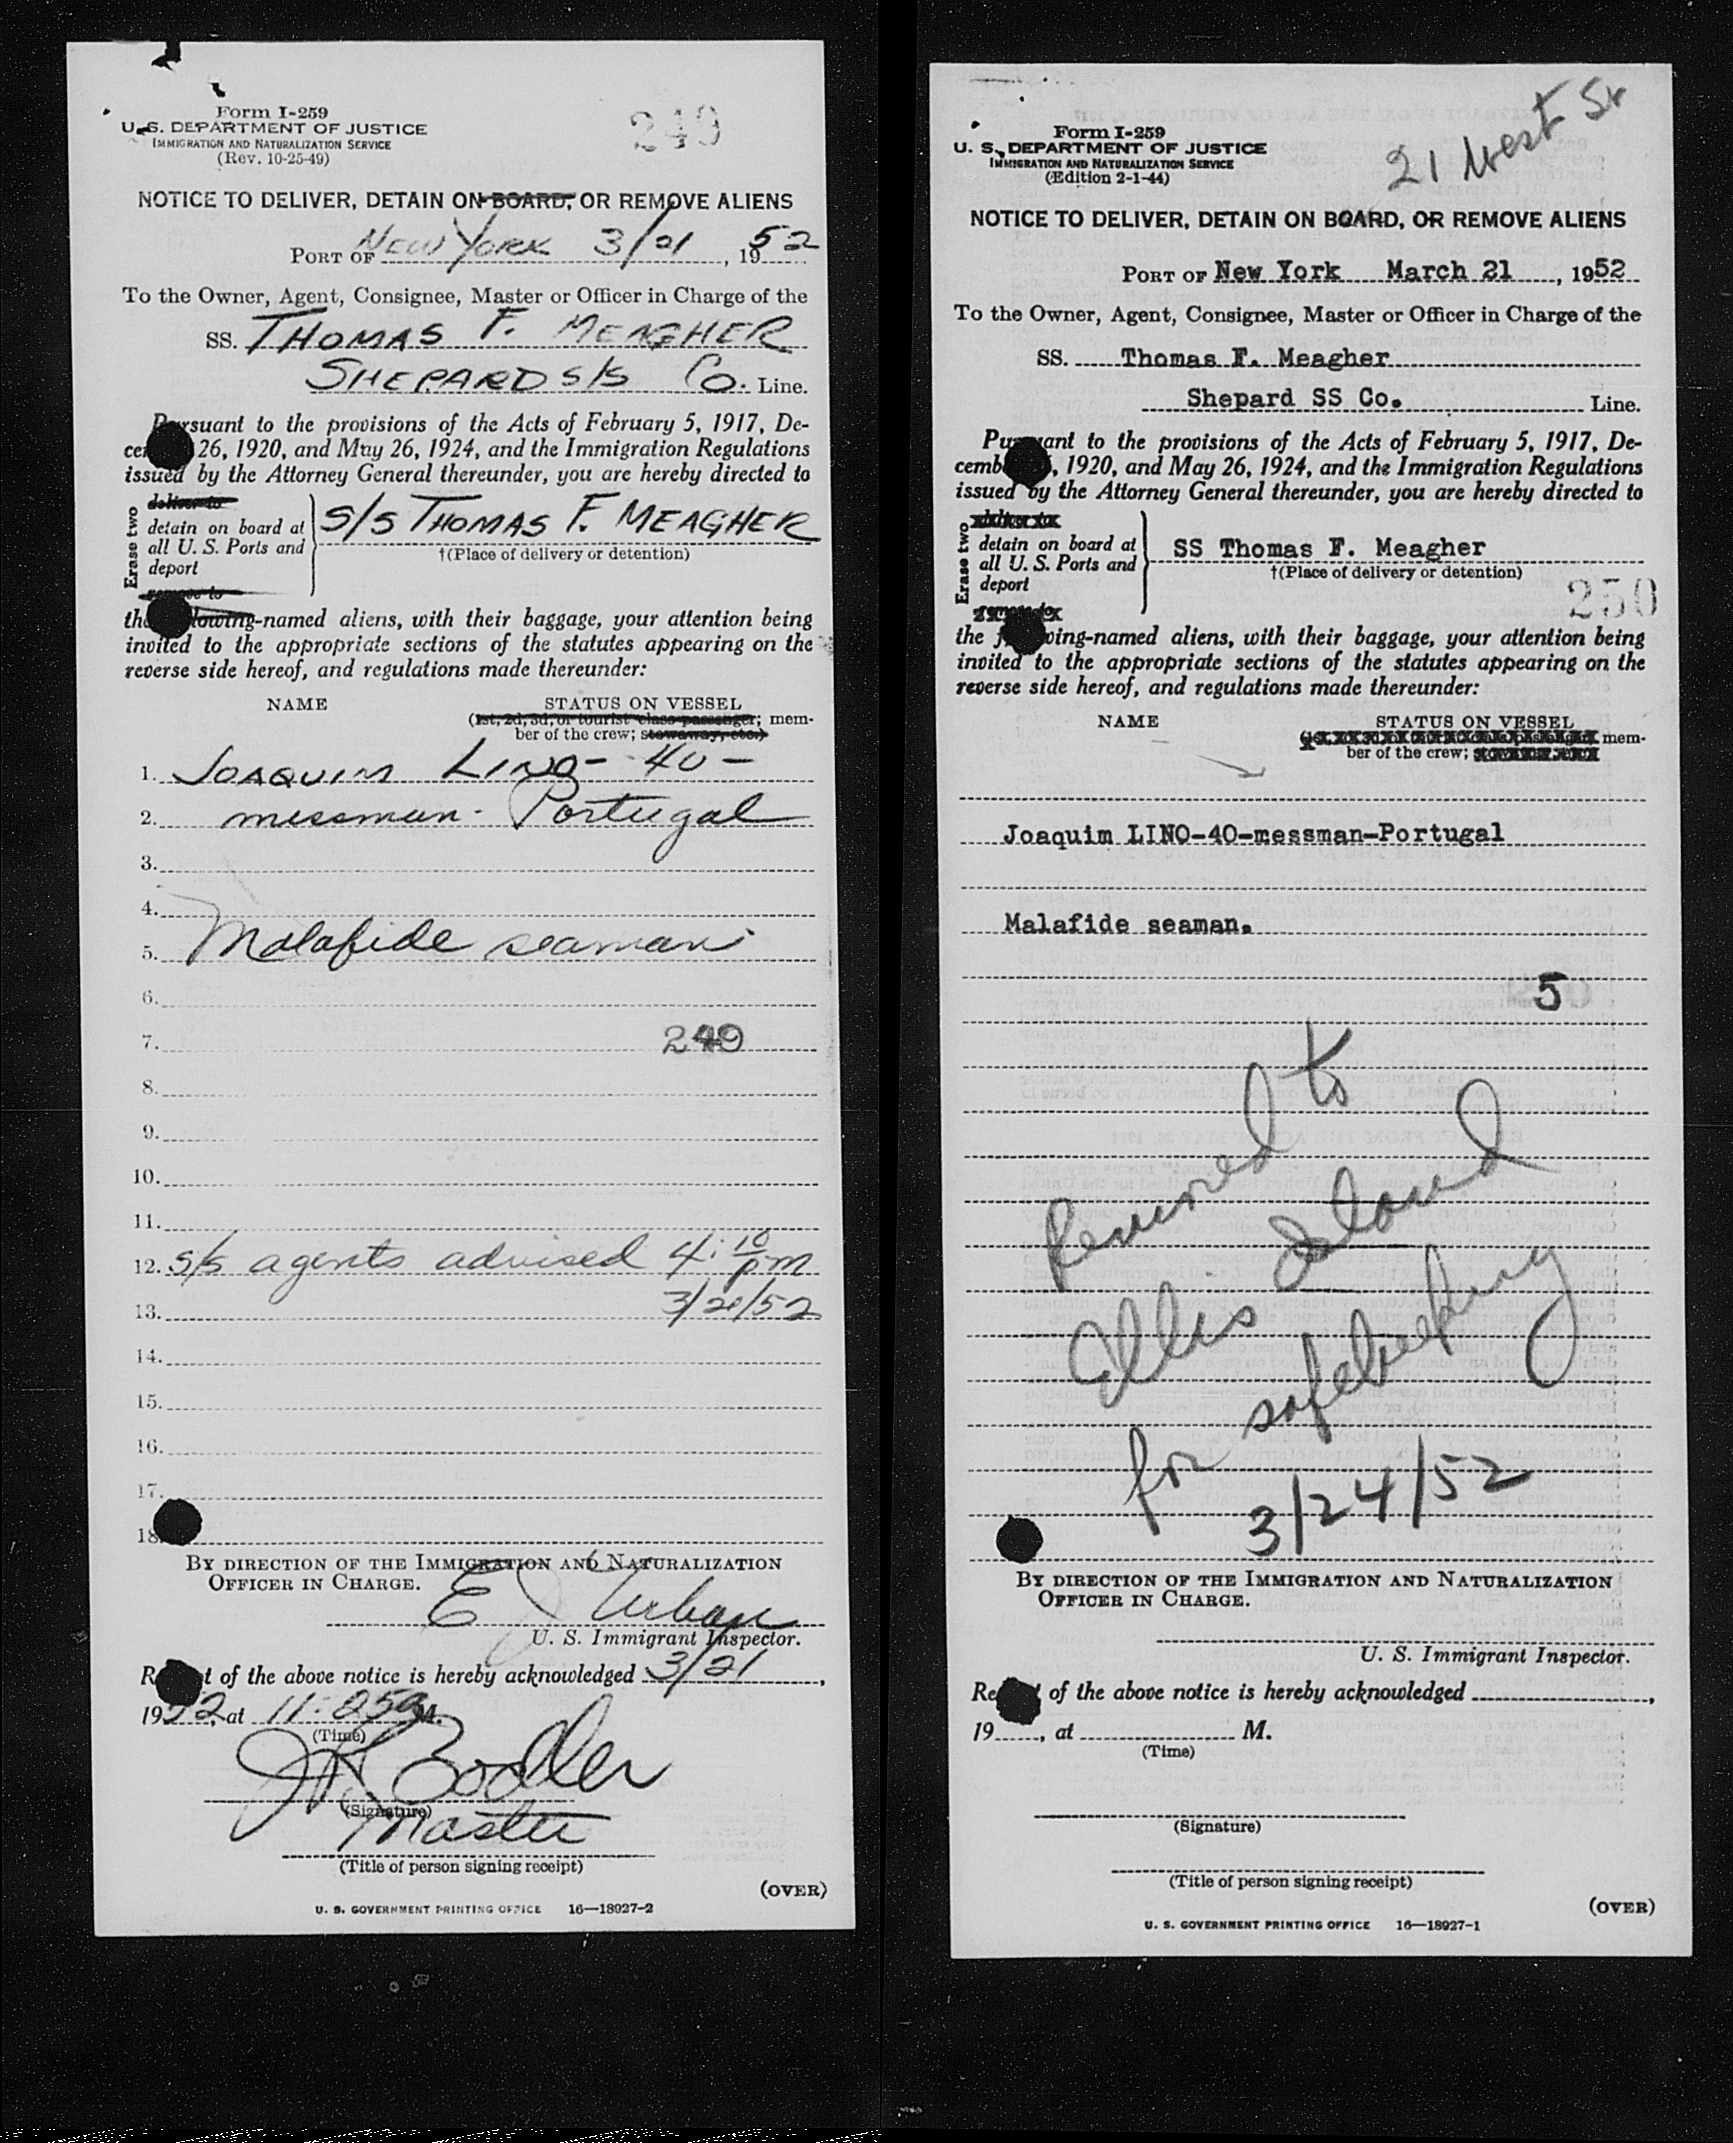 Form I-259
U. S. DEPARTMENT OF JUSTICE
IMMIGRATION AND NATURALIZATION SERVICE
(Rev. 10-25-49)
249
NOTICE TO DELIVER, DETAIN ON BOARD, OR REMOVE ALIENS
PORT OF NEW YORK 3/21, 1952
To the Owner, Agent, Consignee, Master or Officer in Charge of the
SS. THOMAS F. MEAGHER
SHEPARD S/S Co. Line.
Pursuant to the provisions of the Acts of February 5, 1917, De-
cem 26, 1920, and May 26, 1924, and the Immigration Regulations
issued by the Attorney General thereunder, you are hereby directed to
Erase two
deliver to
detain on board at
all U. S. Ports and
deport
remove to
S/S THOMAS F. MEAGHER
†(Place of delivery or detention)
the following-named aliens, with their baggage, your attention being
invited to the appropriate sections of the statutes appearing on the
reverse side hereof, and regulations made thereunder:
NAME STATUS ON VESSEL
(1st, 2d, 3d, or tourist class passenger; mem-
ber of the crew; stowaway, etc.)
1. JOAQUIM LINO - 40 -
2. messman - Portugal
3.
4.
5. Malafide seaman
6.
7. 249
8.
9.
10.
11.
12. s/s agents advised 4:10 pm
13. 3/21/52
14.
15.
16.
17.
18.
BY DIRECTION OF THE IMMIGRATION AND NATURALIZATION
OFFICER IN CHARGE.
E J Urban
U. S. Immigrant Inspector.
Receipt of the above notice is hereby acknowledged 3/21,
1952, at 11:25 a M.
(Time)
Bodler
(Signature)
Master
(Title of person signing receipt)
(OVER)
U. S. GOVERNMENT PRINTING OFFICE 16—18927-2
21 West St
Form I-259
U. S. DEPARTMENT OF JUSTICE
IMMIGRATION AND NATURALIZATION SERVICE
(Edition 2-1-44)
NOTICE TO DELIVER, DETAIN ON BOARD, OR REMOVE ALIENS
PORT OF New York March 21, 1952
To the Owner, Agent, Consignee, Master or Officer in Charge of the
SS. Thomas F. Meagher
Shepard SS Co. Line.
Pursuant to the provisions of the Acts of February 5, 1917, De-
cember 26, 1920, and May 26, 1924, and the Immigration Regulations
issued by the Attorney General thereunder, you are hereby directed to
Erase two
deliver to
detain on board at
all U. S. Ports and
deport
remove to
SS Thomas F. Meagher
†(Place of delivery or detention)
250
the following-named aliens, with their baggage, your attention being
invited to the appropriate sections of the statutes appearing on the
reverse side hereof, and regulations made thereunder:
NAME STATUS ON VESSEL
mem-
ber of the crew;
Joaquim LINO-40-messman-Portugal
Malafide seaman.
5
Removed to
Ellis Island
for safekeeping
3/24/52
BY DIRECTION OF THE IMMIGRATION AND NATURALIZATION
OFFICER IN CHARGE.
U. S. Immigrant Inspector.
Receipt of the above notice is hereby acknowledged ,
19 , at M.
(Time)
(Signature)
(Title of person signing receipt)
(OVER)
U. S. GOVERNMENT PRINTING OFFICE 16—18927-1